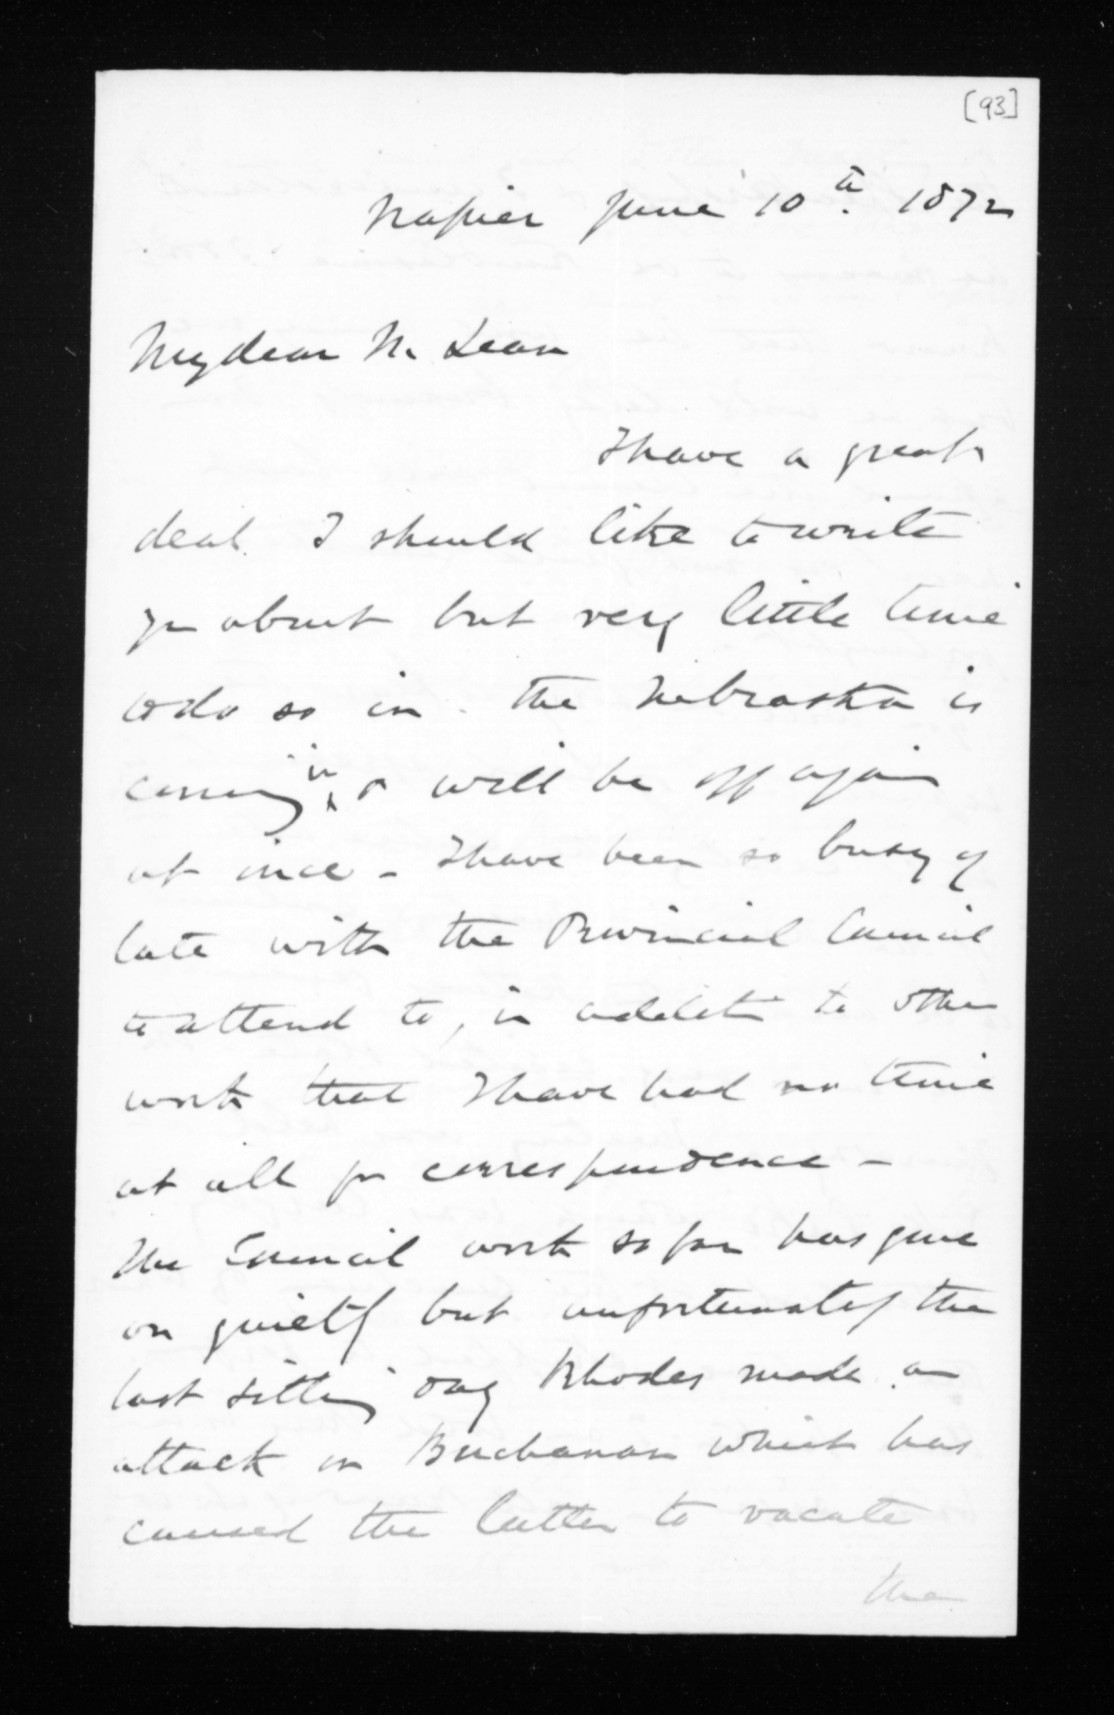 [93]
Napier June 10th. 1872
My dear McLean
I have a great
deal I should like to write
you about but very little time
to do so in. the Nebraska is
coming in & will be off again
at once - I have been so busy of
late with the Provincial Council
to attend to, in addit to other
work that I have had no time
at all for correspondence -
The Council work so far has gone
on quietly but unfortunately the
last sitting day Rhodes made an
attack on Buchanan which has
caused the latter to vacate
the